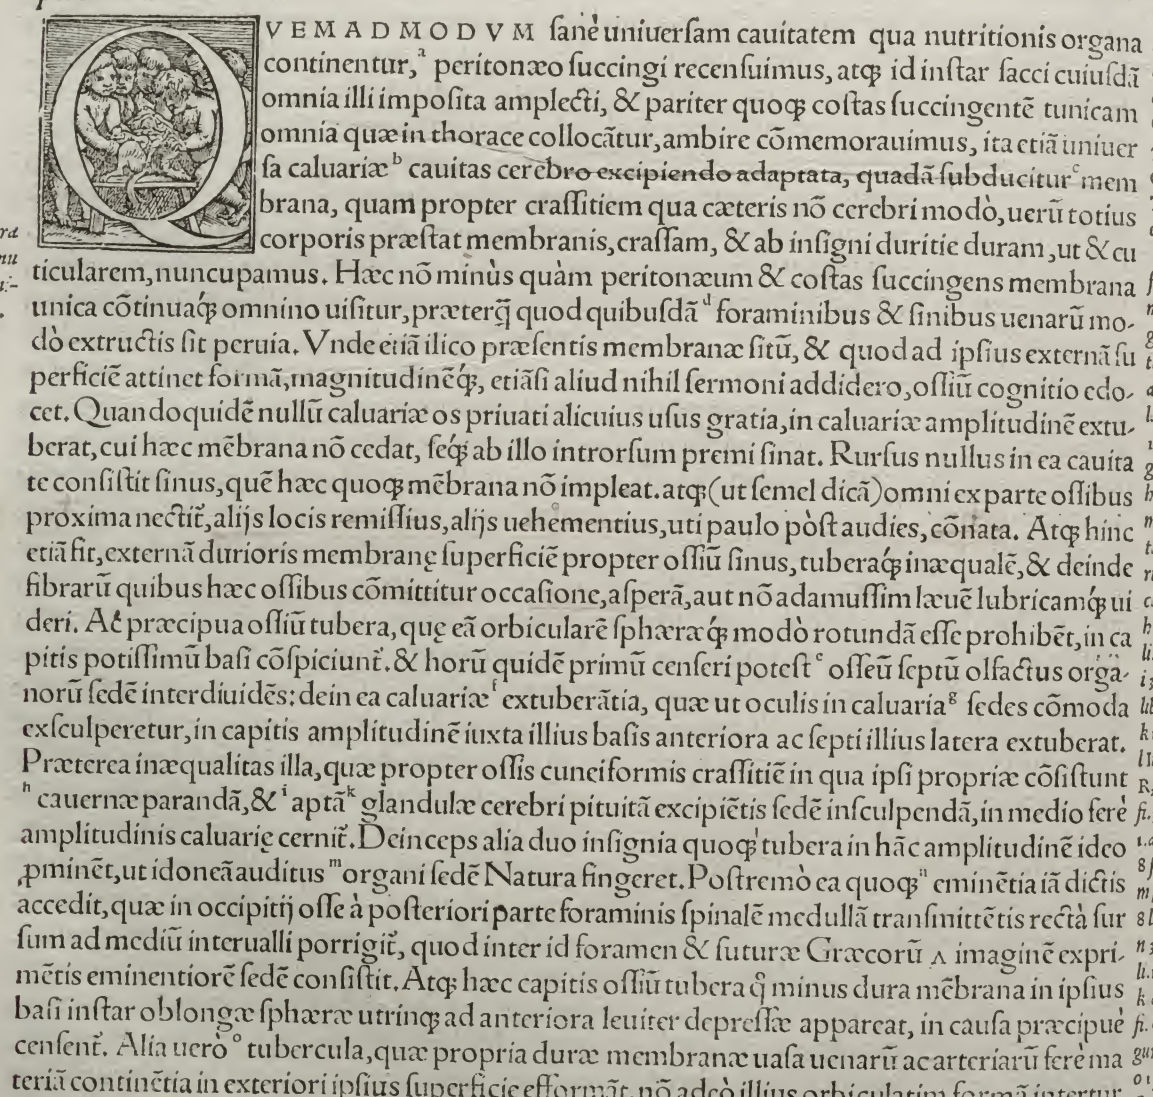 QVEMADMODVM ſanè uniuerſam cauitatem qua nutritionis organa
continentur,ᵃ peritonæo ſuccingi recenſuimus, atq; id inſtar ſacci cuiuſdā
omnia illi impoſita amplecti, & pariter quoq; coſtas ſuccingentē tunicam
omnia quæ in thorace collocātur, ambire cōmemorauimus, ita etiā uniuer
ſa caluariæᵇ cauitas cerebro excipiendo adaptata, quadā ſubduciturᶜ mem
brana, quam propter craſſitiem qua cæteris nō cerebri modò, uerū totius
corporis præſtat membranis, craſſam, & ab inſigni duritie duram, ut & cu
ticularem, nuncupamus. Hæc nō minùs quàm peritonæum & coſtas ſuccingens membrana
unica cōtinuaq́; omnino uiſitur, præterq̃ quod quibuſdāᵈ foraminibus & ſinibus uenarū mo-
dò extructis ſit peruia. Vnde etiā ilico præſentis membranæ ſitū, & quod ad ipſius externā ſu
perficiē attinet formā, magnitudinēq́;, etiāſi aliud nihil ſermoni addidero, oſſiū cognitio edo-
cet. Quandoquidē nullū caluariæ os priuati alicuius uſus gratia, in caluariæ amplitudinē extu-
berat, cui hæc mēbrana nō cedat, ſeq́; ab illo introrſum premi ſinat. Rurſus nullus in ea cauita
te conſiſtit ſinus, quē hæc quoq; mēbrana nō impleat. atq; (ut ſemel dicā) omni ex parte oſſibus
proxima nectit̃, alijs locis remiſſius, alijs uehementius, uti paulo pòſt audies, cōnata. Atq; hinc
etiā fit, externā durioris membranę ſuperficiē propter oſſiū ſinus, tuberaq́; inæqualē, & deinde
fibrarū quibus hæc oſſibus cōmittitur occaſione, aſperā, aut nō adamuſſim læuē lubricamq́; ui
deri. At præcipua oſſiū tubera, quę eā orbicularē ſphæræq́; modò rotundā eſſe prohibēt, in ca
pitis potiſſimū baſi cōſpiciunt̃. & horū quidē primū cenſeri poteſtᵉ oſſeū ſeptū olfactus orga-
norū ſedē interdiuidēs: dein ea caluariæᶠ extuberātia, quæ ut oculis in caluariaᵍ ſedes cōmoda
exſculperetur, in capitis amplitudinē iuxta illius baſis anteriora ac ſepti illius latera extuberat.
Præterea inæqualitas illa, quæ propter oſſis cuneiformis craſſitiē in qua ipſi propriæ cōſiſtunt
ʰ cauernæ parandā, &ⁱ aptāᵏ glandulæ cerebri pituitā excipiētis ſedē inſculpendā, in medio ferè
amplitudinis caluarię cernit̃. Deinceps alia duo inſignia quoq; tubera in hāc amplitudinē ideo
ꝓminēt, ut idoneā auditusᵐ organi ſedē Natura fingeret. Poſtremò ea quoq;ⁿ eminētia iā dictis
accedit, quæ in occipitij oſſe à poſteriori parte foraminis ſpinalē medullā tranſmittētis rectà ſur
ſum ad mediū interualli porrigit̃, quod inter id foramen & ſuturæ Græcorū Λ imaginē expri-
mētis eminentiorē ſedē conſiſtit. Atq; hæc capitis oſſiū tubera q̊ minus dura mēbrana in ipſius
baſi inſtar oblongæ ſphæræ utrinq; ad anteriora leuiter depreſſæ appareat, in cauſa præcipuè
cenſent̃. Alia ueròᵒ tubercula, quæ propria duræ membranæ uaſa uenarū ac arteriarū ferè ma
teriā continētia in exteriori ipſius ſuperficie efformāt, nō adeò illius orbiculatim formā intertur